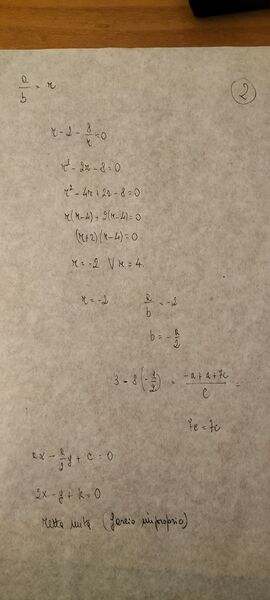 a/b = r
2
r - 2 - 8/r = 0
r² - 2r - 8 = 0
r² - 4r + 2r - 8 = 0
r(r-4) + 2(r-4) = 0
(r+2)(r-4) = 0
r = -2 V r = 4
r = -2 a/b = -2
b = -a/2
3 - 8(-1/2) = (-a + a + 7c)/c =
7c = 7c
ax - a/2 y + c = 0
2x - y + k = 0
retta unita (fascio improprio)